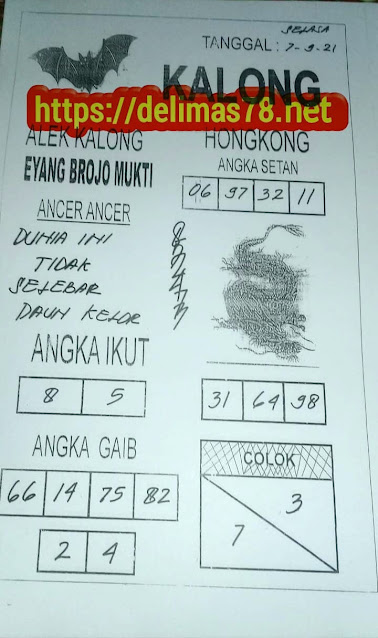 SELASA
TANGGAL : 7-9-21
KALONG
https://delimas78.net
ALEK KALONG
EYANG BROJO MUKTI
HONGKONG
ANGKA SETAN
06 97 32 11
ANCER ANCER
DUNIA INI
TIDAK
SELEBAR
DAUN KELOR
ANGKA IKUT
8 5
31 64 98
ANGKA GAIB
66 14 75 82
2 4
COLOK
3
7